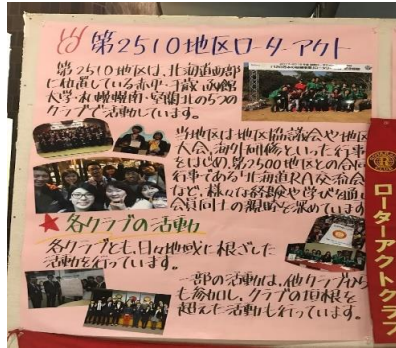 第2510地区ローターアクト
第2510地区は、北海道西部
に位置している赤平・千歳・函館
大学・札幌幌南・室蘭北の5つの
クラブで活動しています。
当地区は地区協議会や地区
大会、海外研修といった行事
をはじめ、第2500地区との合同
行事である北海道RA交流会
など、様々な経験や学びを通し
会員同士の親睦を深めています
各クラブの活動
各クラブとも、日々地域に根ざした
活動を行っています。
一部の活動は、他クラブから
も参加し、クラブの垣根を
超えた活動も行っています。
ローターアクトクラブ